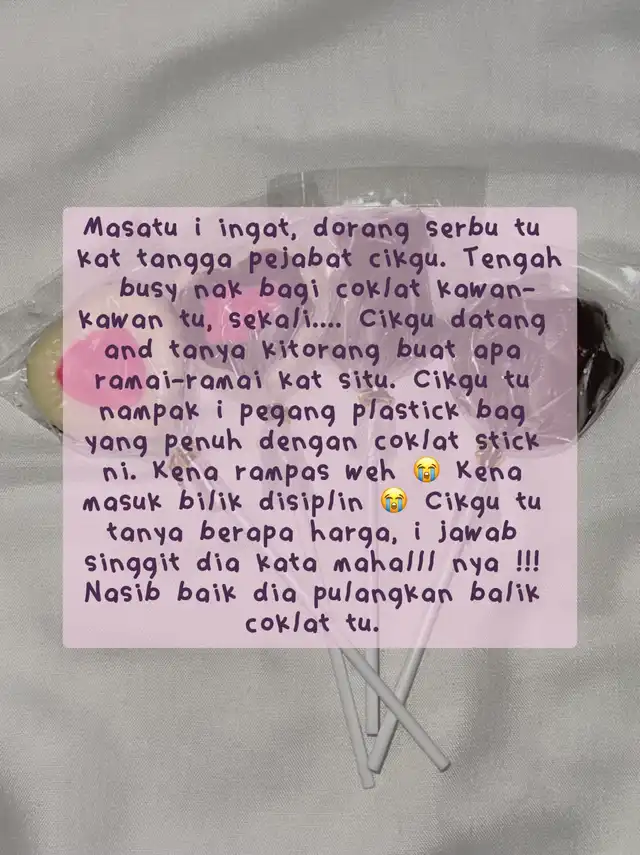 Masatu i ingat, dorang serbu tu
kat tangga pejabat cikgu. Tengah
busy nak bagi coklat kawan-
kawan tu, sekali.... Cikgu datang
and tanya kitorang buat apa
ramai-ramai kat situ. Cikgu tu
nampak i pegang plastick bag
yang penuh dengan coklat stick
ni. Kena rampas weh 😭 Kena
masuk bilik disiplin 😭 Cikgu tu
tanya berapa harga, i jawab
singgit dia kata mahalll nya !!!
Nasib baik dia pulangkan balik
coklat tu.